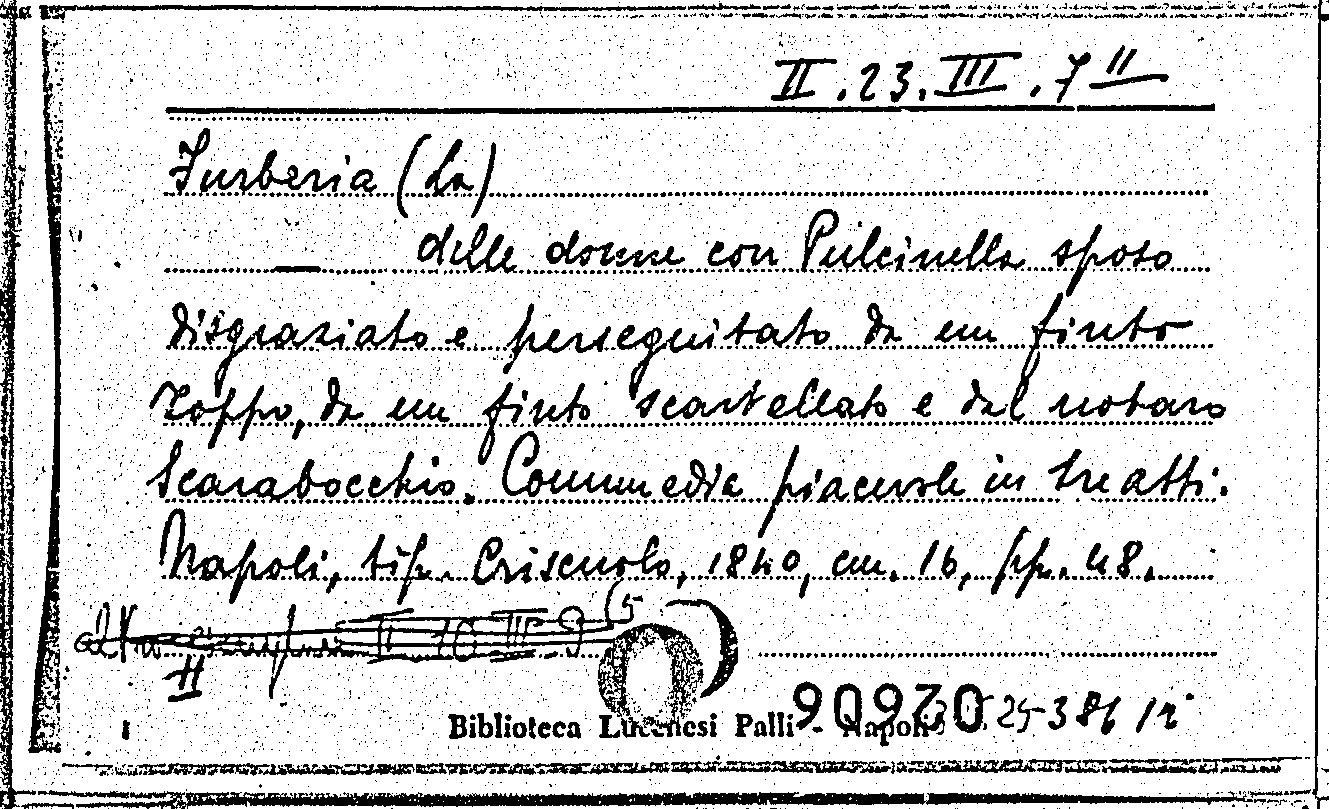 II.23.III.7 II
Furberia (La)
— delle donne con Pulcinella sposo
disgraziato e perseguitato da un finto
zoppo, da un finto scartellato e dal notaro
Scarabocchio. Commedia piacevole in tre atti.
Napoli, tip. Criscuolo, 1840, cm. 16, pp. 48.
altro esemplare II 10 III 9 (5
II
Biblioteca Lucchesi Palli - Napoli